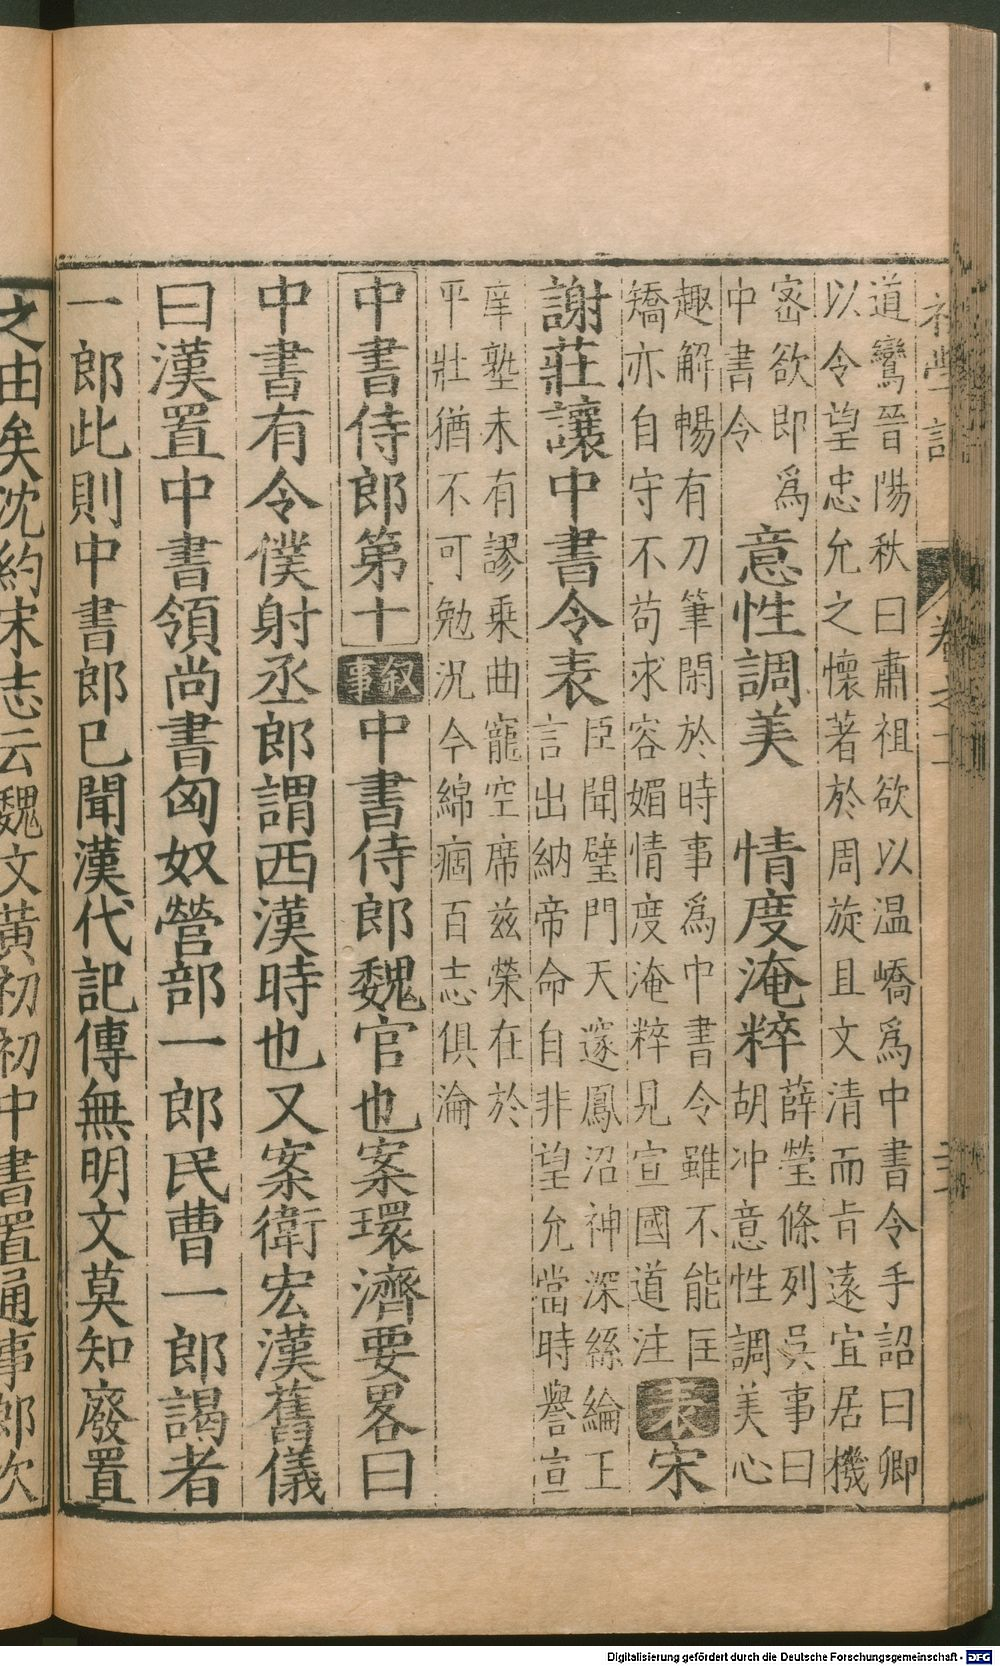 道鸞晉陽秋曰肅祖欲以温嶠為中書令手詔曰卿
以令望忠允之懷著於周旋且文清而㫖遠宜居機
宻欲即為
中書令
意性調美　情度淹粹
薛瑩條列吳事曰
胡冲意性調美心
趣解暢有刀筆閑於時事為中書令雖不能匡
矯亦自守不苟求容媚情度淹粹見宣國道注
表宋
謝莊讓中書令表
臣聞璧門天邃鳳沼神深絲綸王
言出納帝命自非望允當時譽宣
庠塾未有謬乗曲寵空席兹榮在於
平壯猶不可勉況今綿痼百志俱淪
中書侍郎第十
叙事
中書侍郎魏官也案環濟要畧曰
中書有令僕射丞郎謂西漢時也又案衛宏漢舊儀
曰漢置中書領尚書匈奴營部一郎民曹一郎謁者
一郎此則中書郎已聞漢代記傳無明文莫知廢置
之由矣沈約宋志云魏文黃初初中書置通事郎次
Digitalisierung gefördert durch die Deutsche Forschungsgemeinschaft - DFG